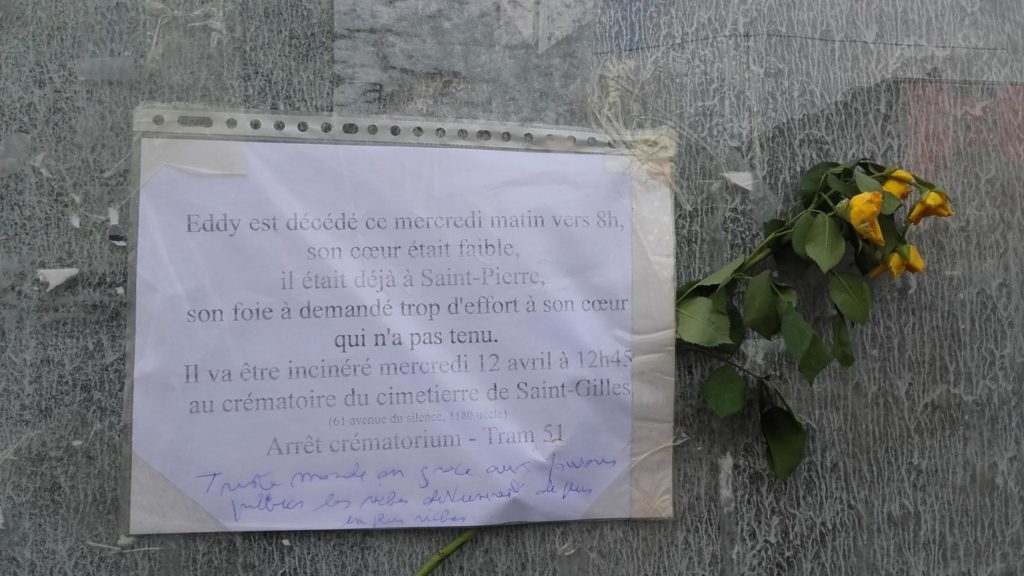 Eddy est décédé ce mercredi matin vers 8h,
son cœur était faible,
il était déjà à Saint-Pierre,
son foie à demandé trop d'effort à son cœur
qui n'a pas tenu.
Il va être incinéré mercredi 12 avril à 12h45
au crématoire du cimetierre de Saint-Gilles
(61 avenue du silence, 1180 uccle)
Arrêt crématorium - Tram 51
Triste monde ou grâce aux
les riches deviennent de plus
en plus riches